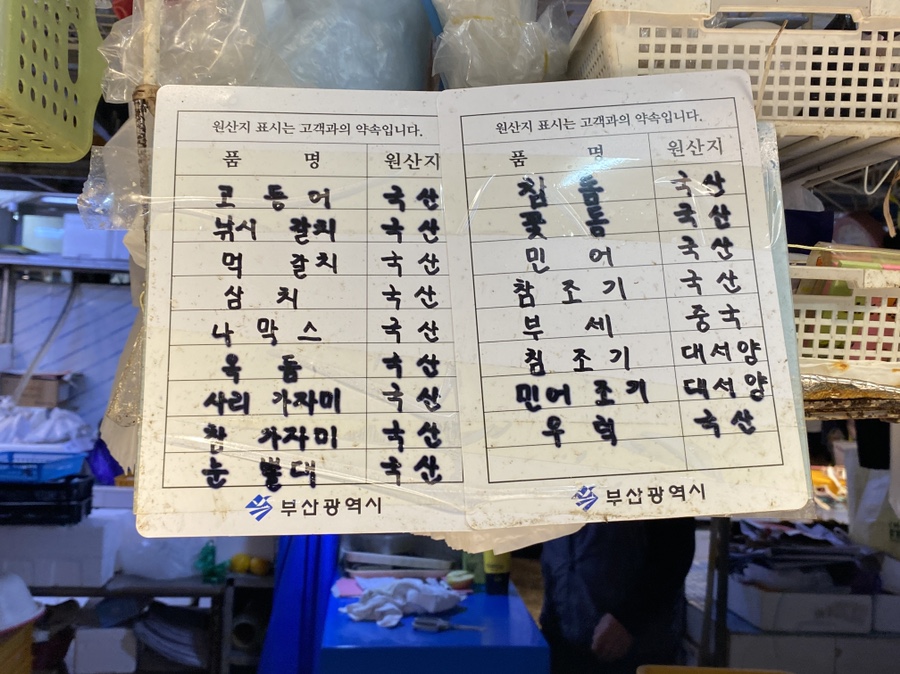 원산지 표시는 고객과의 약속입니다.
품 명 원산지
고 등 어 국 산
낚시 갈치 국 산
먹 갈치 국 산
삼 치 국 산
나 막 스 국 산
옥 돔 국 산
사리 가자미 국 산
참 가자미 국 산
눈 뽈대 국 산
부산광역시
원산지 표시는 고객과의 약속입니다.
품 명 원산지
참 돔 국 산
꽃 돔 국 산
민 어 국 산
참 조 기 국 산
부 세 중국
침 조 기 대서양
민어 조기 대서양
우 럭 국산
부산광역시